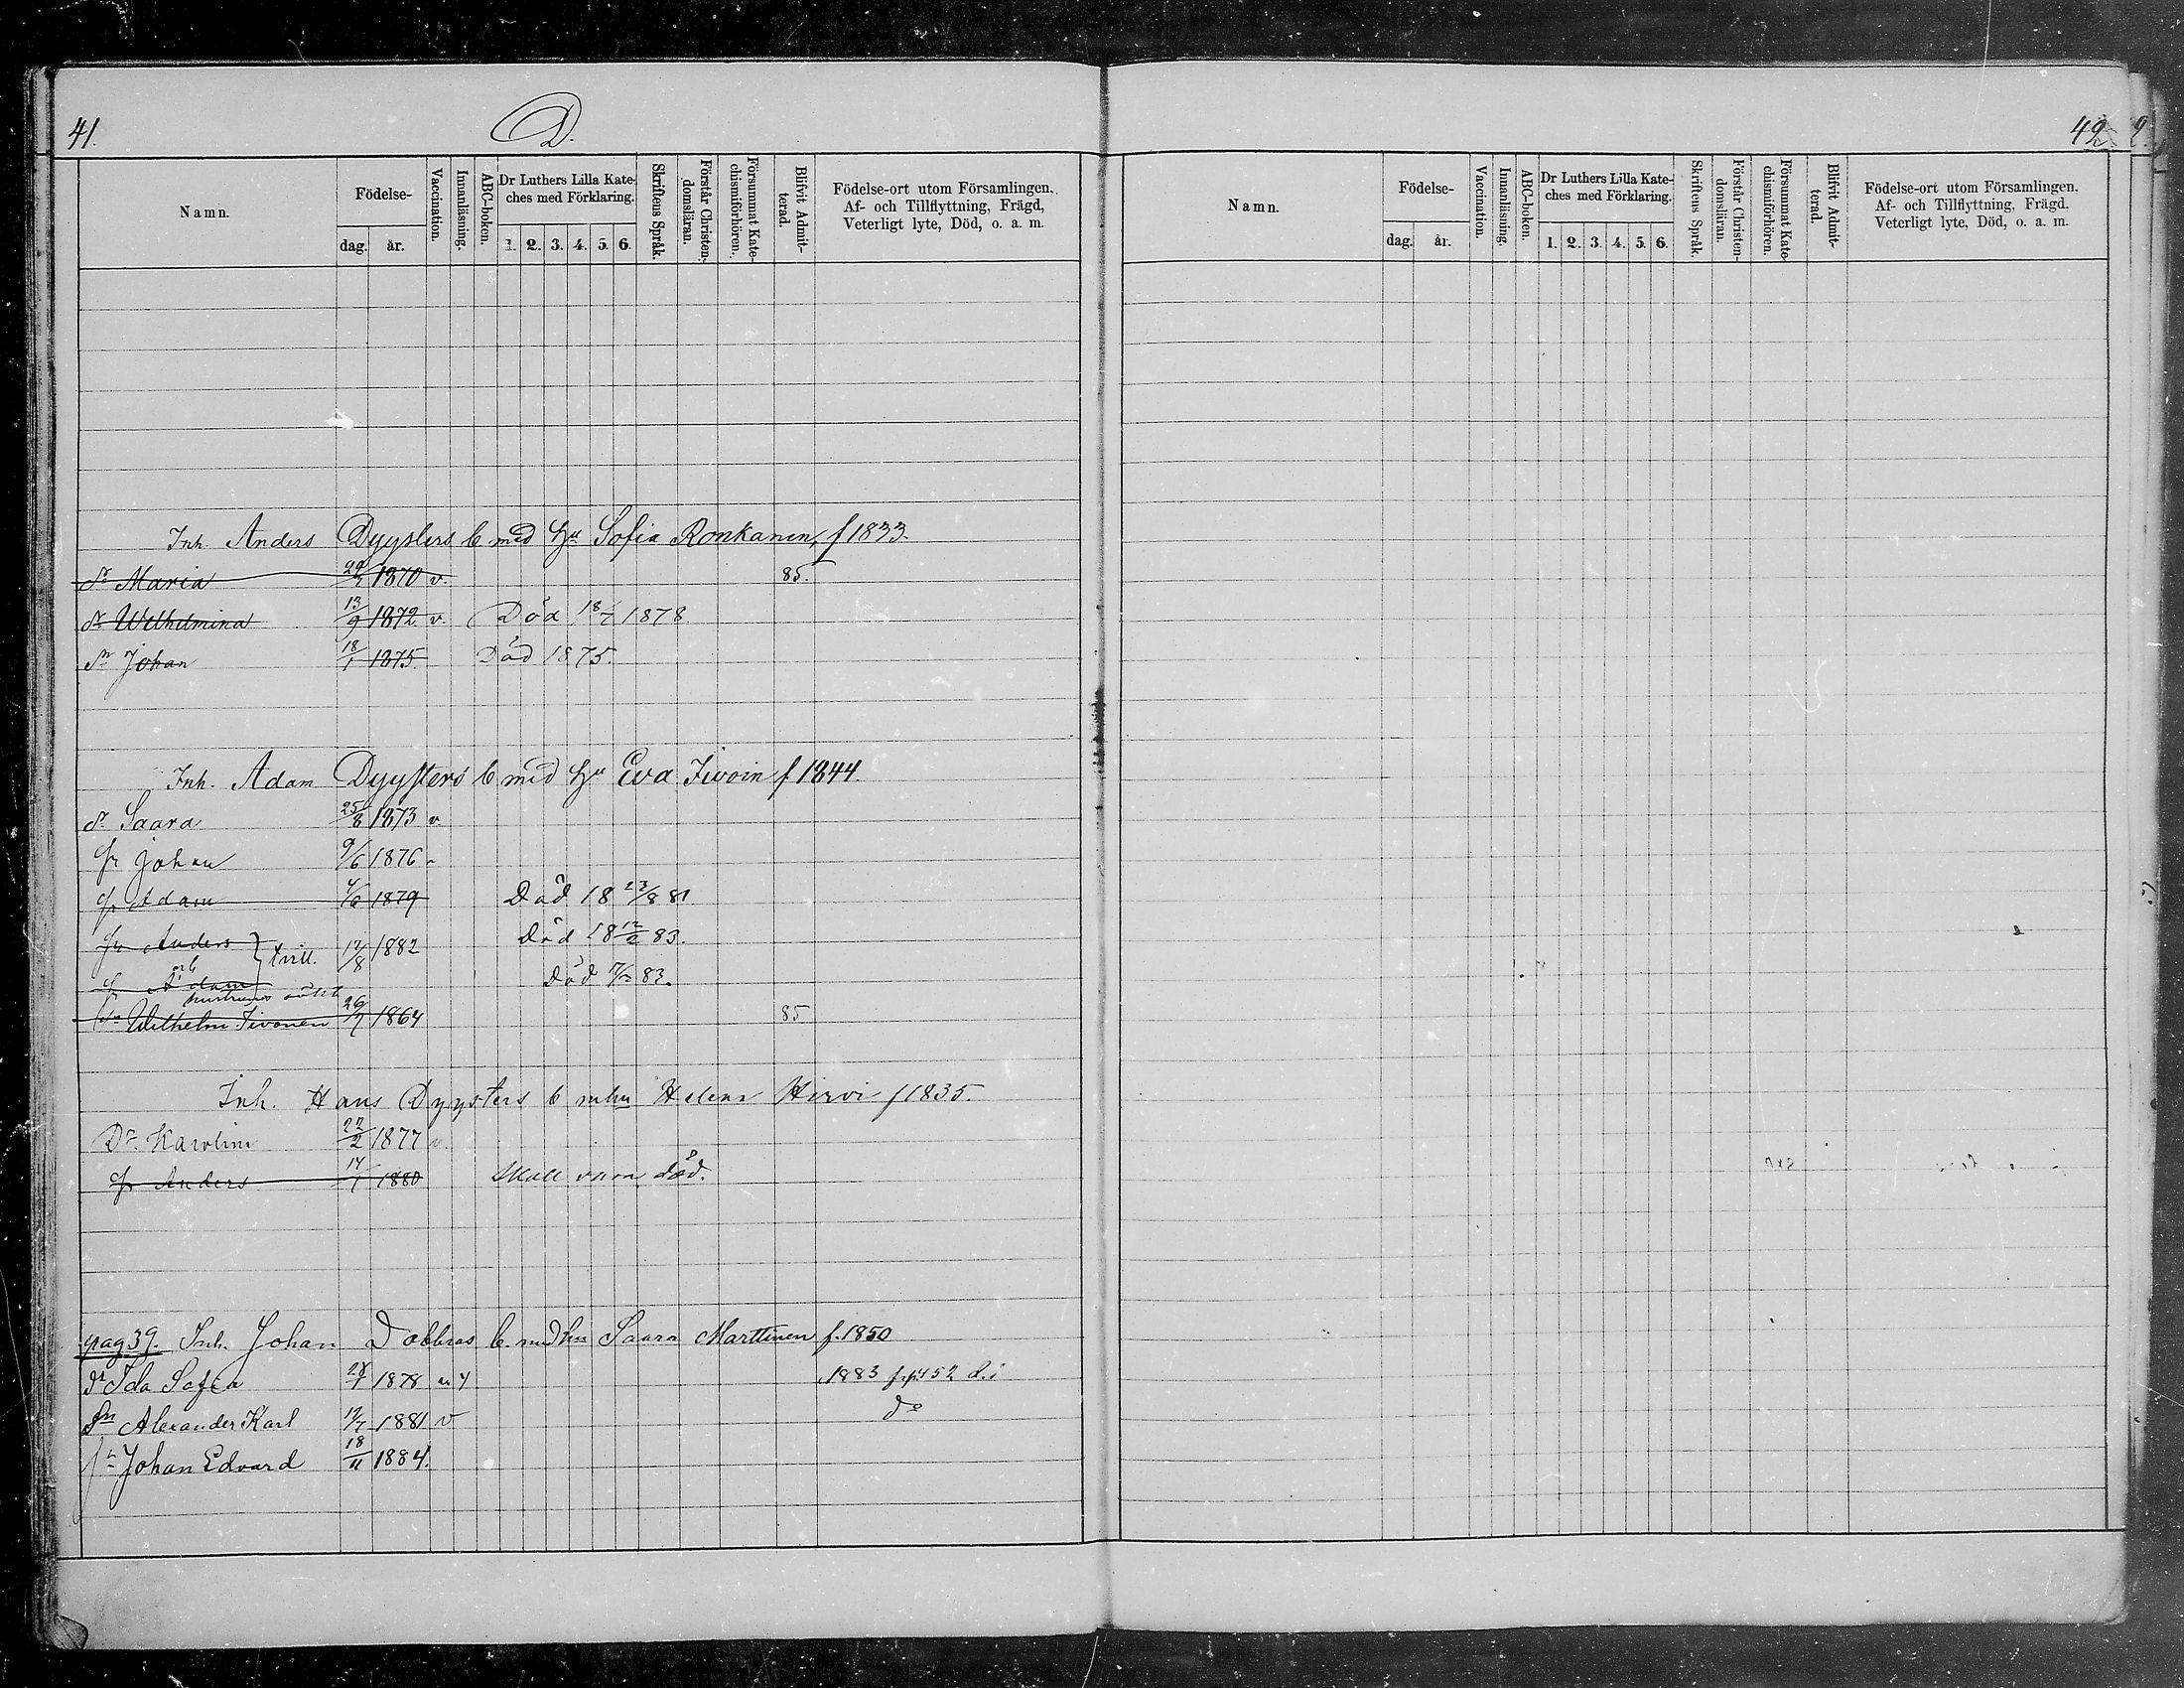 41.
D.
Namn.
Födelse-
dag. år.
Vaccination.
Innanläsning.
ABC-boken.
Dr Luthers Lilla Kate-
ches med Förklaring.
1. 2. 3. 4. 5. 6.
Skriftens Språk.
Förstår Christen-
domsläran.
Försummat Kate-
chismiförhören.
Blifvit Admit-
terad.
Födelse-ort utom Församlingen,
Af- och Tillflyttning, Frägd,
Veterligt lyte, Död, o. a. m.
Inh. Anders Dyysters b med hu Sofia Ronkanen, f 1833.
dr Maria 1870 v. 85.
dr Wilhelmina 13/9 1872 v. Död 18/7 1878.
sn Johan 18/1 1875. Död 1875.
Inh. Adam Dyysters b med hu Eva Iivoin f 1844.
dr Saara 25/8 1873 v.
sn Johan 9/6 1876
sn Adam 1879 Död 18 23/8 81
sn Anders } tvill. 12/8 1882 Död 18 12/2 83.
och
sn Adam Död 83.
hustruns
sn Wilhelm Iivonen 1864 85
Inh. Hans Dyysters b m hu Helena Hirvi f 1835.
Dr Karolina 22/2 1877 v.
sn Anders 14/1 1880 skall vara död.
pag 39. Inh. Johan Dobbras b. med hu Saara Marttinen f. 1850
dr Ida Sofia 1878 1883 452
sn Alexander Karl 1881 v do
sn Johan Edvard 18/11 1884.
42
2.
Namn.
Födelse-
dag. år.
Vaccination.
Innanläsning.
ABC-boken.
Dr Luthers Lilla Kate-
ches med Förklaring.
1. 2. 3. 4. 5. 6.
Skriftens Språk.
Förstår Christen-
domsläran.
Försummat Kate-
chismiförhören.
Blifvit Admit-
terad.
Födelse-ort utom Församlingen,
Af- och Tillflyttning, Frägd,
Veterligt lyte, Död, o. a. m.